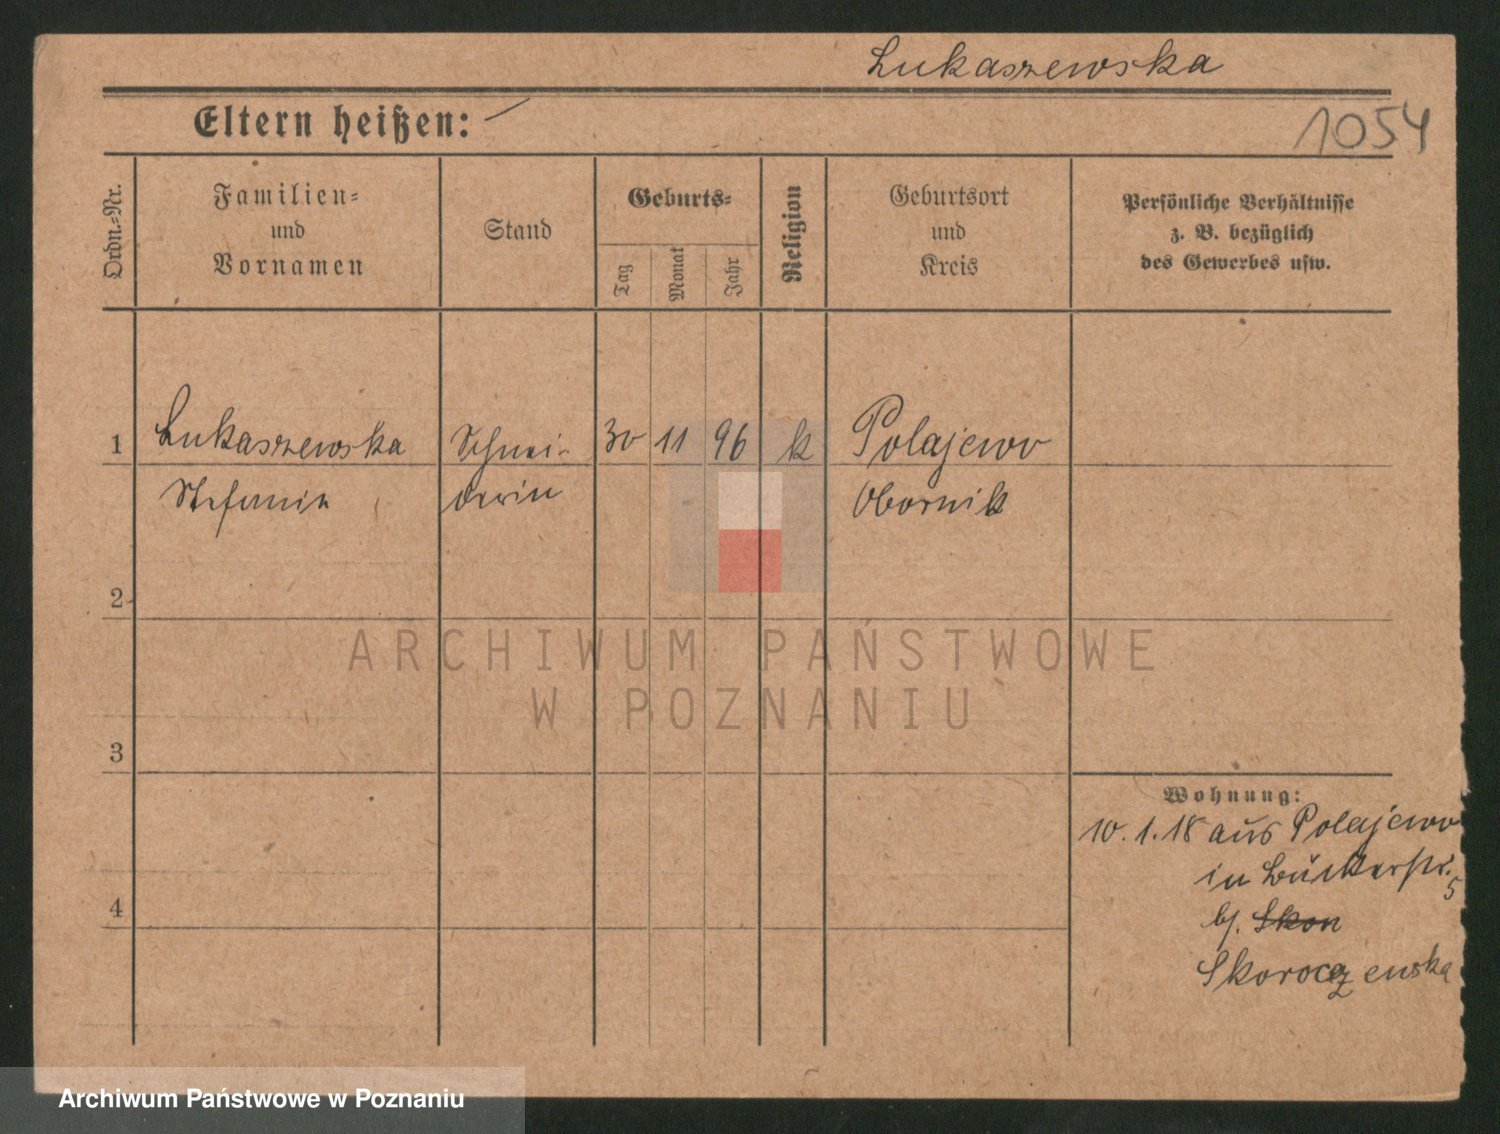 Lukaszewska
Eltern heißen:
1054
Ordn.=Nr.
Familien=
und
Vornamen
Stand
Geburts=
Tag
Monat
Jahr
Religion
Geburtsort
und
Kreis
Persönliche Verhältnisse
z. B. bezüglich
des Gewerbes usw.
1 Lukaszewska Schnei- 30 11 96 k Polajewo
Stefanie derin Obornik
2
3
4
Wohnung:
10.1.18 aus Polajewo
in Bückerstr. 5
bj. Skon
Skoroczewska
ARCHIWUM PAŃSTWOWE
W POZNANIU
Archiwum Państwowe w Poznaniu